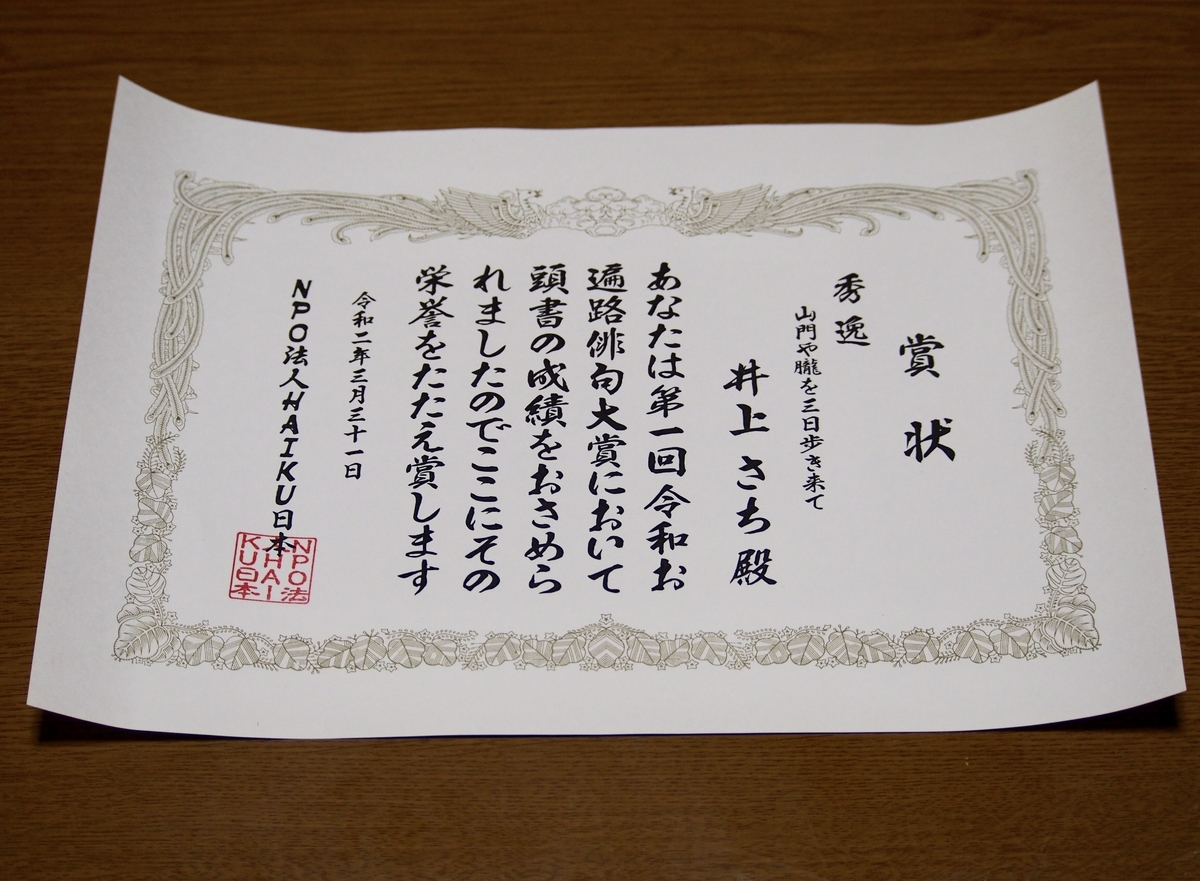 賞状
秀逸
山門や朧を三日歩き来て
井上さち殿
あなたは第一回令和お
遍路俳句大賞において
頭書の成績をおさめら
れましたのでここにその
栄誉をたたえ賞します
令和二年三月三十一日
NPO法人HAIKU日本
NPO法
人HAI
KU日本